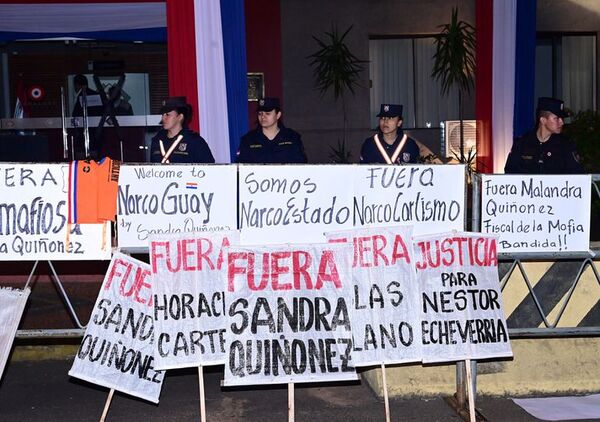 FUERA
mafiosa
Quiñonez
Welcome to
NarcoGuay
by
Sandra Quiñonez
Somos
NarcoEstado
FUERA
NarcoCartismo
Fuera Malandra
Quiñonez
Fiscal de la Mafia
¡Bandida!!
FUERA
SANDRA
QUIÑONEZ
FUERA
HORACI
CARTE
FUERA
SANDRA
QUIÑONEZ
FUERA
LAS
LANO
JUSTICIA
PARA
NESTOR
ECHEVERRIA